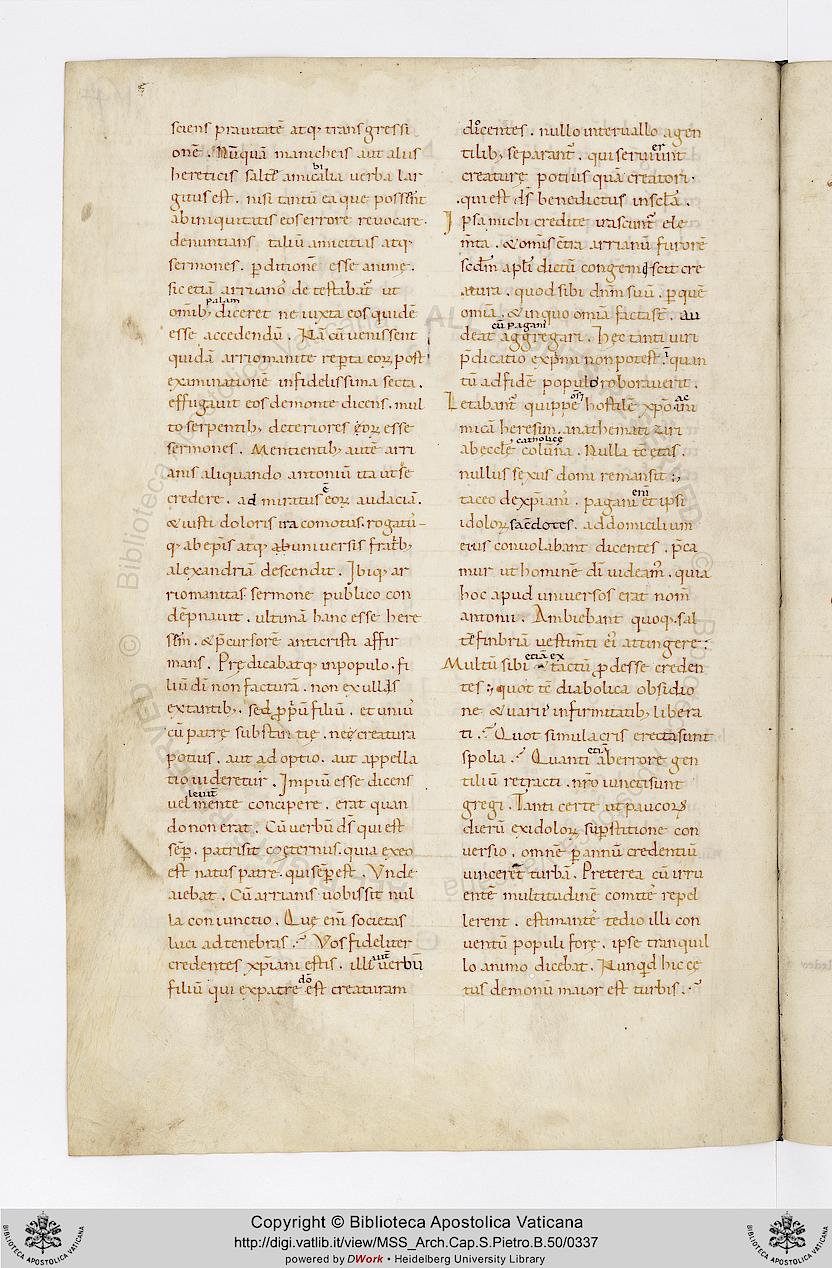 sciens prauitatē atq; transgressi
onē. Nūquā manicheis aut aliis
hereticis saltē amicabilia uerba lar
gitus est. nisi tantū ea que possent
ab iniquitatis eos errore reuocare.
denuntians taliū amicitias atq;
sermones. pditionē esse animę.
sic etiā arrianos detestabat̄ ut
omib; palam diceret ne iuxta eos quidē
esse accedendū. Nā cū uenissent
quidā arriomanite repta eoꝝ post
examinationē infidelissima secta.
effugauit eos de monte dicens. mul
to serpentib; deteriores eoꝝ esse
sermones. Mentientib; autē arri
anis aliquando antoniū ita ut se
credere. admiratus ē eoꝝ audaciā.
& iusti doloris ira comotus. rogatus
q; ab epīs atq; ab uniuersis fratrib;
alexandriā descendit. Ibiq; ar
riomanitas sermone publico con
dēpnauit. ultimā hanc esse here
sim. & p̄cursorē anticristi affir
mans. Prędicabatq; in populo. fi
liū dī non facturā. non ex nullis
extantib;. sed ppiū filiū. et uniꝰ
cū patre substantię. ne creatura
potius. aut adoptio. aut appella
tio uideretur. Impiū esse dicens
uel leuit mente concipere. erat quan
do non erat. Cū uerbū dś qui est
semp. patri sit coeternus. quia ex eo
est natus patre. qui semp est. Vnde
aiebat. Cū arrianis uobis sit nul
la coniunctio. Quę enī societas
luci ad tenebras. Vos fideliter
credentes xpiani estis. illi aut uerbū
filiū qui ex patre dō est creaturam
dicentes. nullo interuallo a gen
tilib; separant̄. qui seruierunt
creaturę potius quā creatori.
qui est dś benedictus in scla.
Ipsa michi credite irascunt̄ ele
mta. & omīs ctra arrianū furorē
scdm apli dictū congemiscit cre
atura. quod sibi dnm suū. p quē
omia. & in quo omia facta st̄. au
deat cū paganis aggregari. Hec tanti uiri
pdicatio exprimi non potest. quan
tū ad fidē populos roborauerit.
Letabant̄ quippe osī hostilē xpo ac ini
micā heresim. anathematizari
ab ecclę catholicę coluna. Nulla tc etas.
nullus sexus domi remansit;
taceo de xpianis. pagani enī et ipsi
idoloꝝ sacdotes. ad domicilium
eius conuolabant dicentes. pca
mur ut hominē dī uideamꝰ. quia
hoc apud uniuersos erat nom̄
antonii. Ambiebant quoq; sal
tē finbriā uestimti eiꝰ attingere;
Multū sibi etiā ex tactu pdesse creden
tes; quot tē diabolica obsidio
ne & uariis infirmitatib; libera
ti. Quot simulacris erecta sunt
spolia. Quanti etiā ab errore gen
tiliū retracti. nro iuncti sunt
gregi. Tanti certe ut paucoꝝ
dierū ex idoloꝝ supstitione con
uersio. omnē p annū credentiū
uinceret turbā. Preterea cū irru
entē multitudinē comites repel
lerent. estimantes tedio illi con
uentū populi forę. ipse tranquil
lo animo dicebat. Nunqd hic cę
tus demonū maior est turbis.
Copyright © Biblioteca Apostolica Vaticana
http://digi.vatlib.it/view/MSS_Arch.Cap.S.Pietro.B.50/0337
powered by DWork • Heidelberg University Library